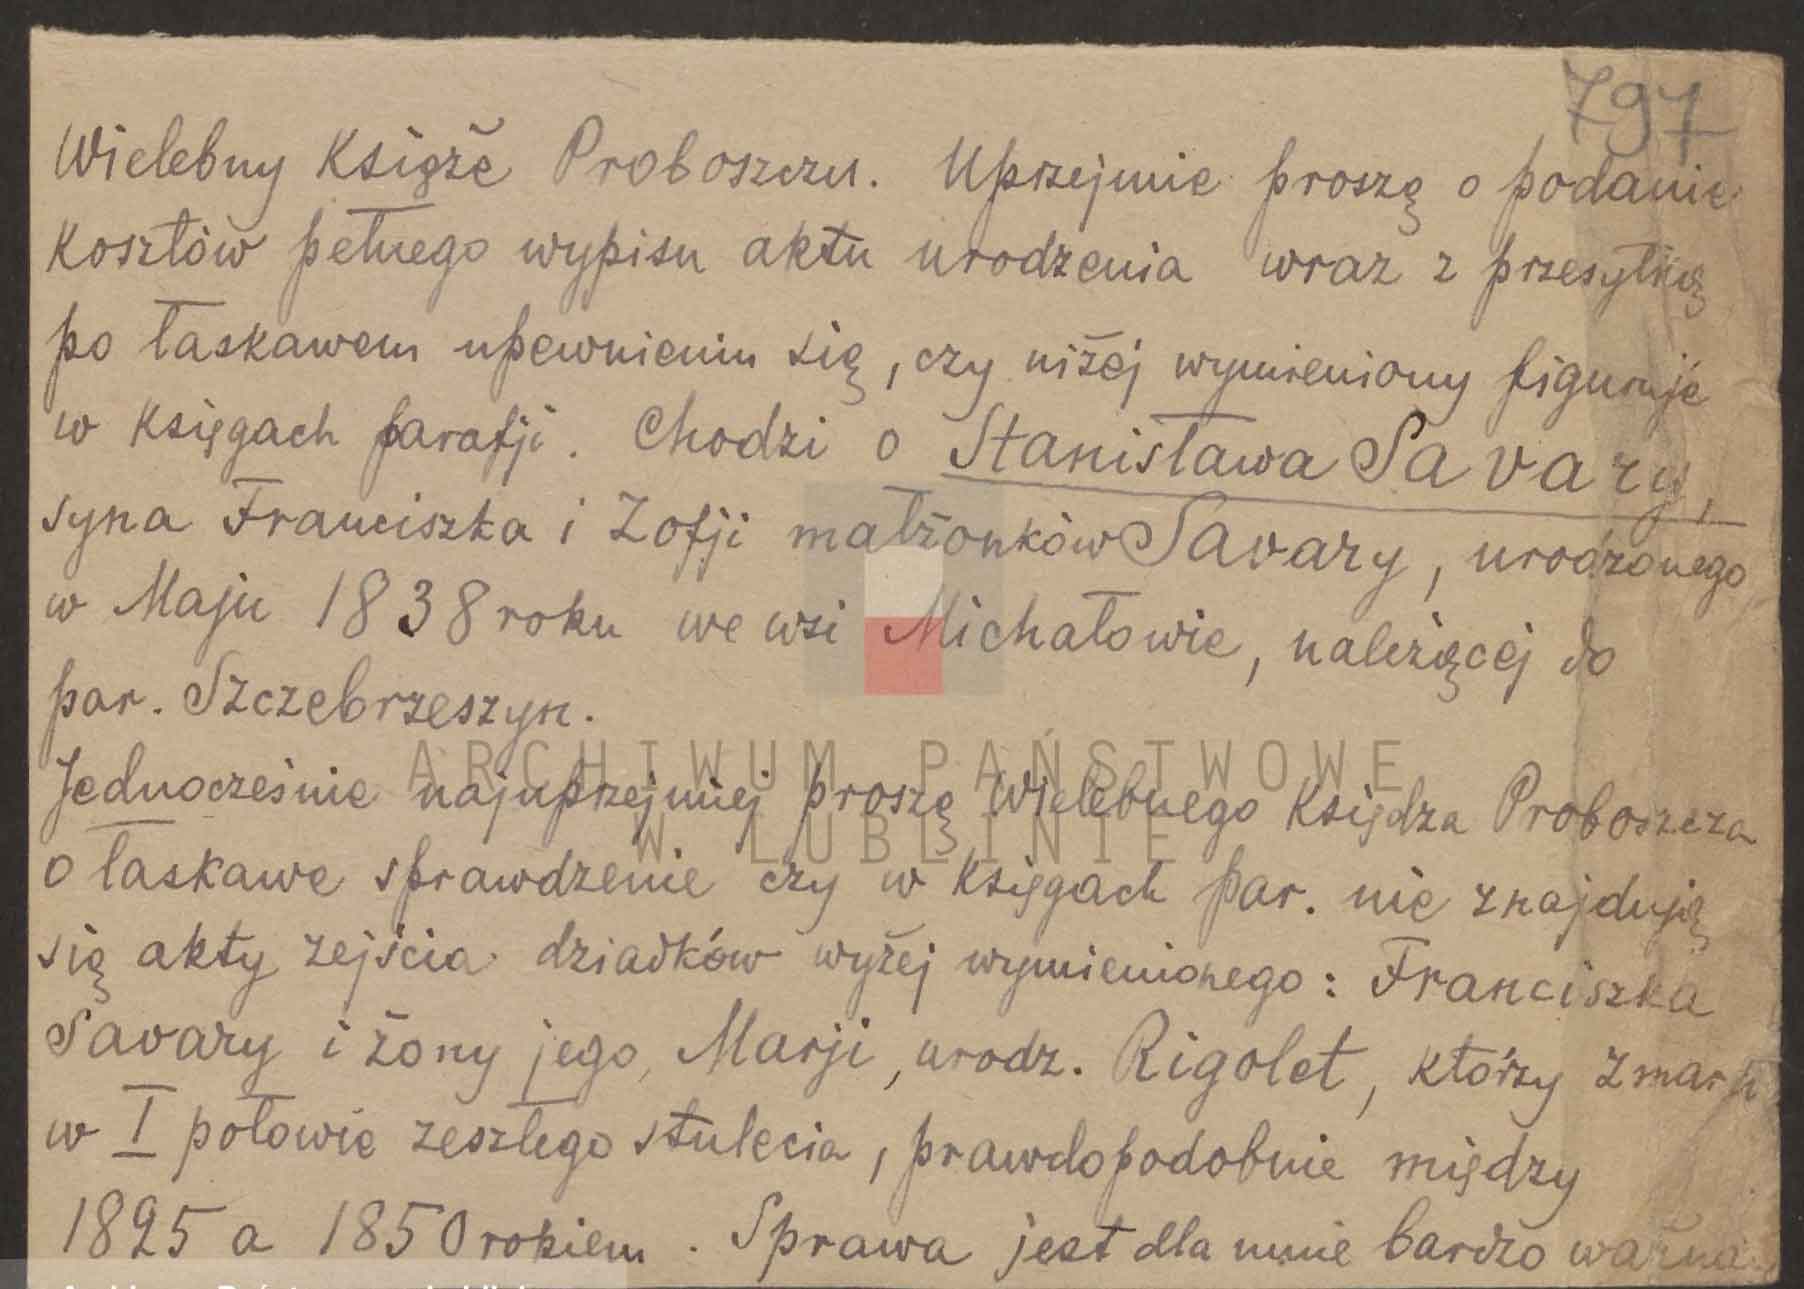 797
Wielebny Księże Proboszczu. Uprzejmie proszę o podanie
kosztów pełnego wypisu aktu urodzenia wraz z przesyłką
po łaskawem upewnieniu się, czy niżej wymieniony figuruje
w księgach parafji. Chodzi o Stanisława Savary,
syna Franciszka i Zofji małżonków Savary, urodzonego
w Maju 1838 roku we wsi Michałowie, należącej do
par. Szczebrzeszyn.
ARCHIWUM PAŃSTWOWE
Jednocześnie najuprzejmiej proszę Wielebnego Księdza Proboszcza
W LUBLINIE
o łaskawe sprawdzenie czy w księgach par. nie znajdują
się akty zejścia dziadków wyżej wymienionego: Franciszka
Savary i żony jego, Marji, urodz. Rigolet, którzy zmarli
w I połowie zeszłego stulecia, prawdopodobnie między
1825 a 1850 rokiem. Sprawa jest dla mnie bardzo ważna